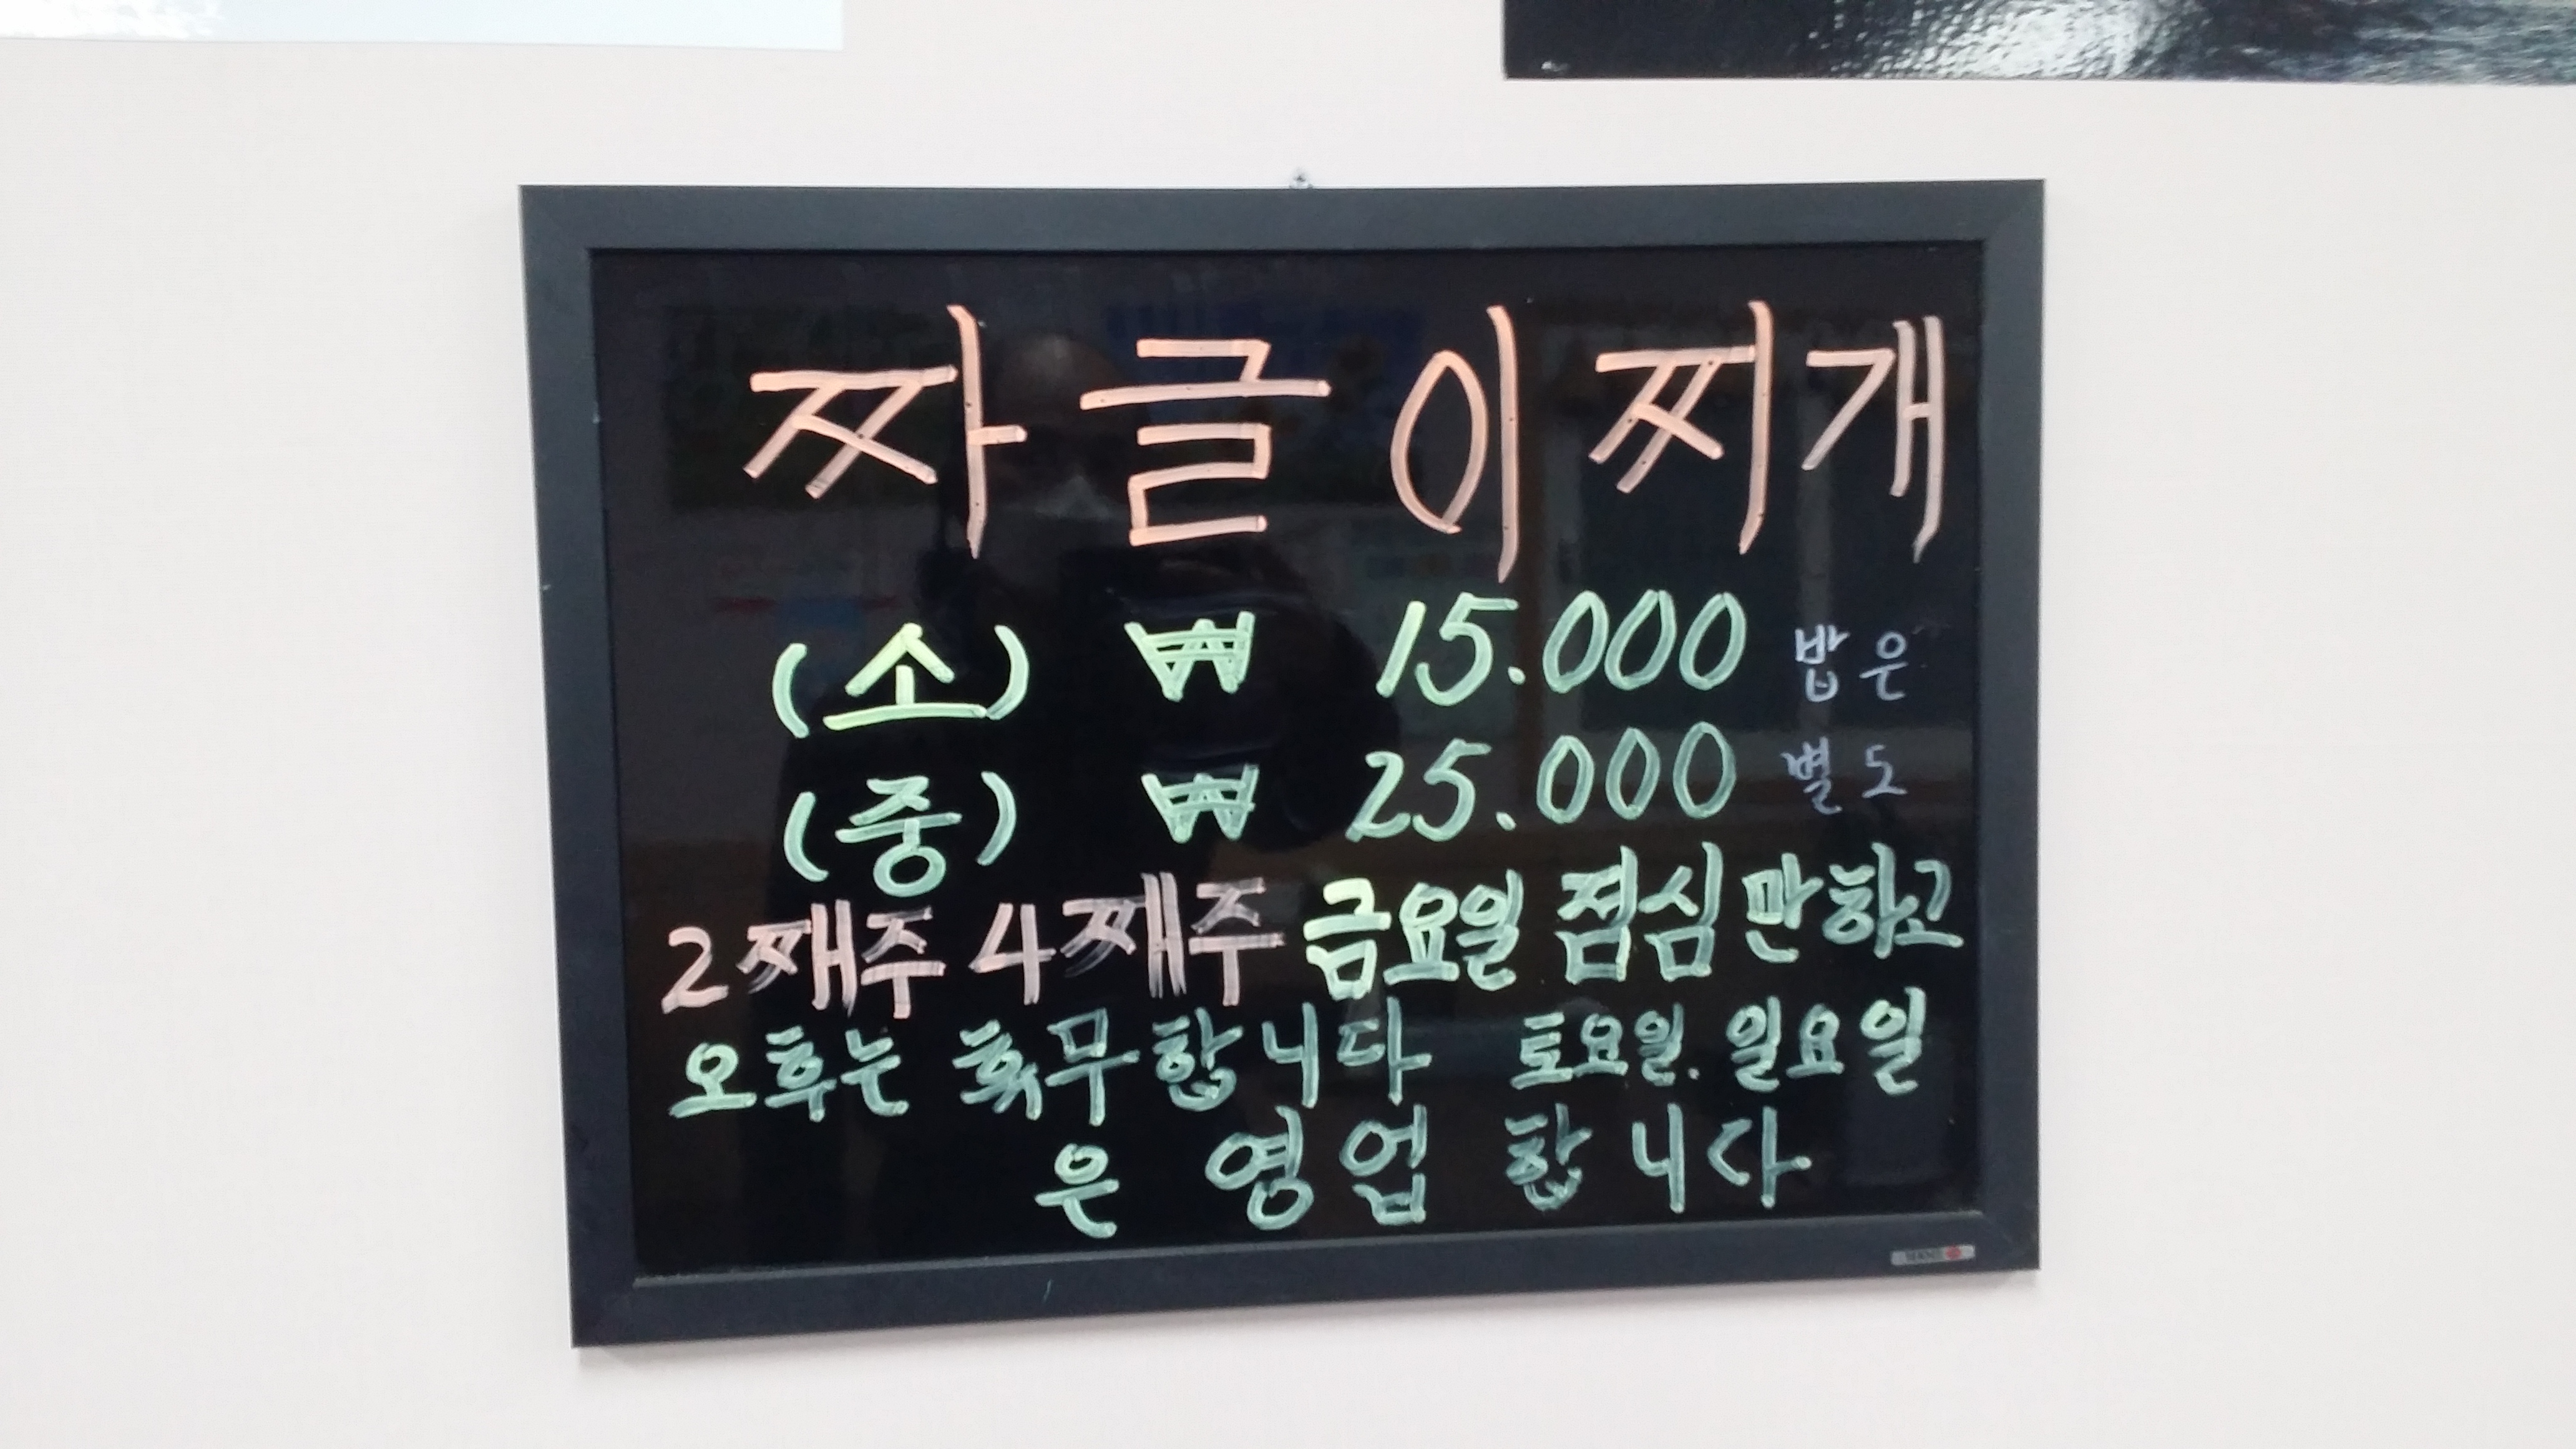 짜글이찌개
(소) ₩ 15.000 밥은
(중) ₩ 25.000 별도
2째주 4째주 금요일 점심만하고
오후는 휴무합니다 토요일. 일요일
은 영업 합니다